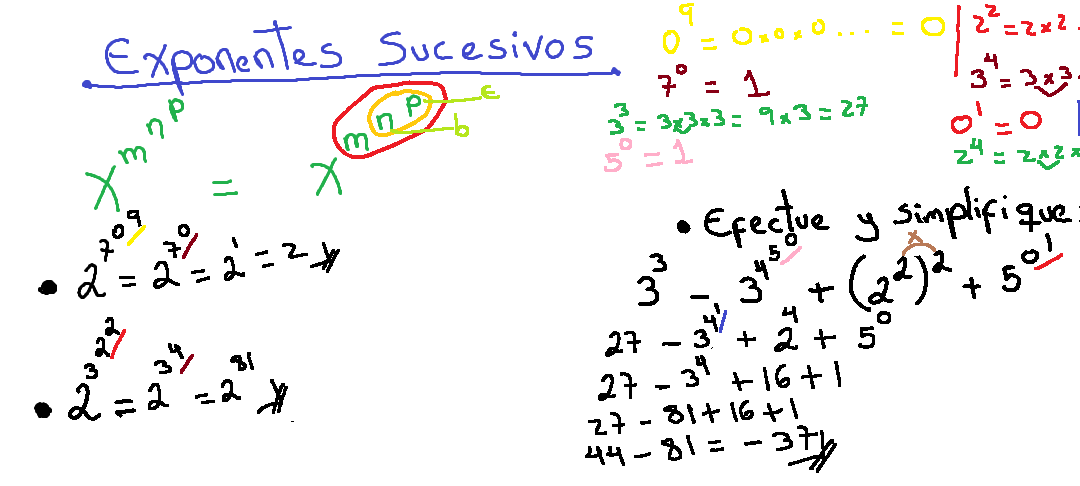 Exponentes Sucesivos
x^m^n^p = x^m^n^p c b
• 2^7^0^9 = 2^7^0 = 2^1 = 2
• 2^3^2^2 = 2^3^4 = 2^81
0^9 = 0x0x0... = 0
7^0 = 1
3^3 = 3x3x3 = 9x3 = 27
5^0 = 1
2^2 = 2x2
3^4 = 3x3
0^1 = 0
2^4 = 2x2x
• Efectue y simplifique:
3^3 - 3^4^5^0 + (2^2)^2 + 5^0^1
x
27 - 3^4^1 + 2^4 + 5^0
27 - 3^4 + 16 + 1
27 - 81 + 16 + 1
44 - 81 = -37